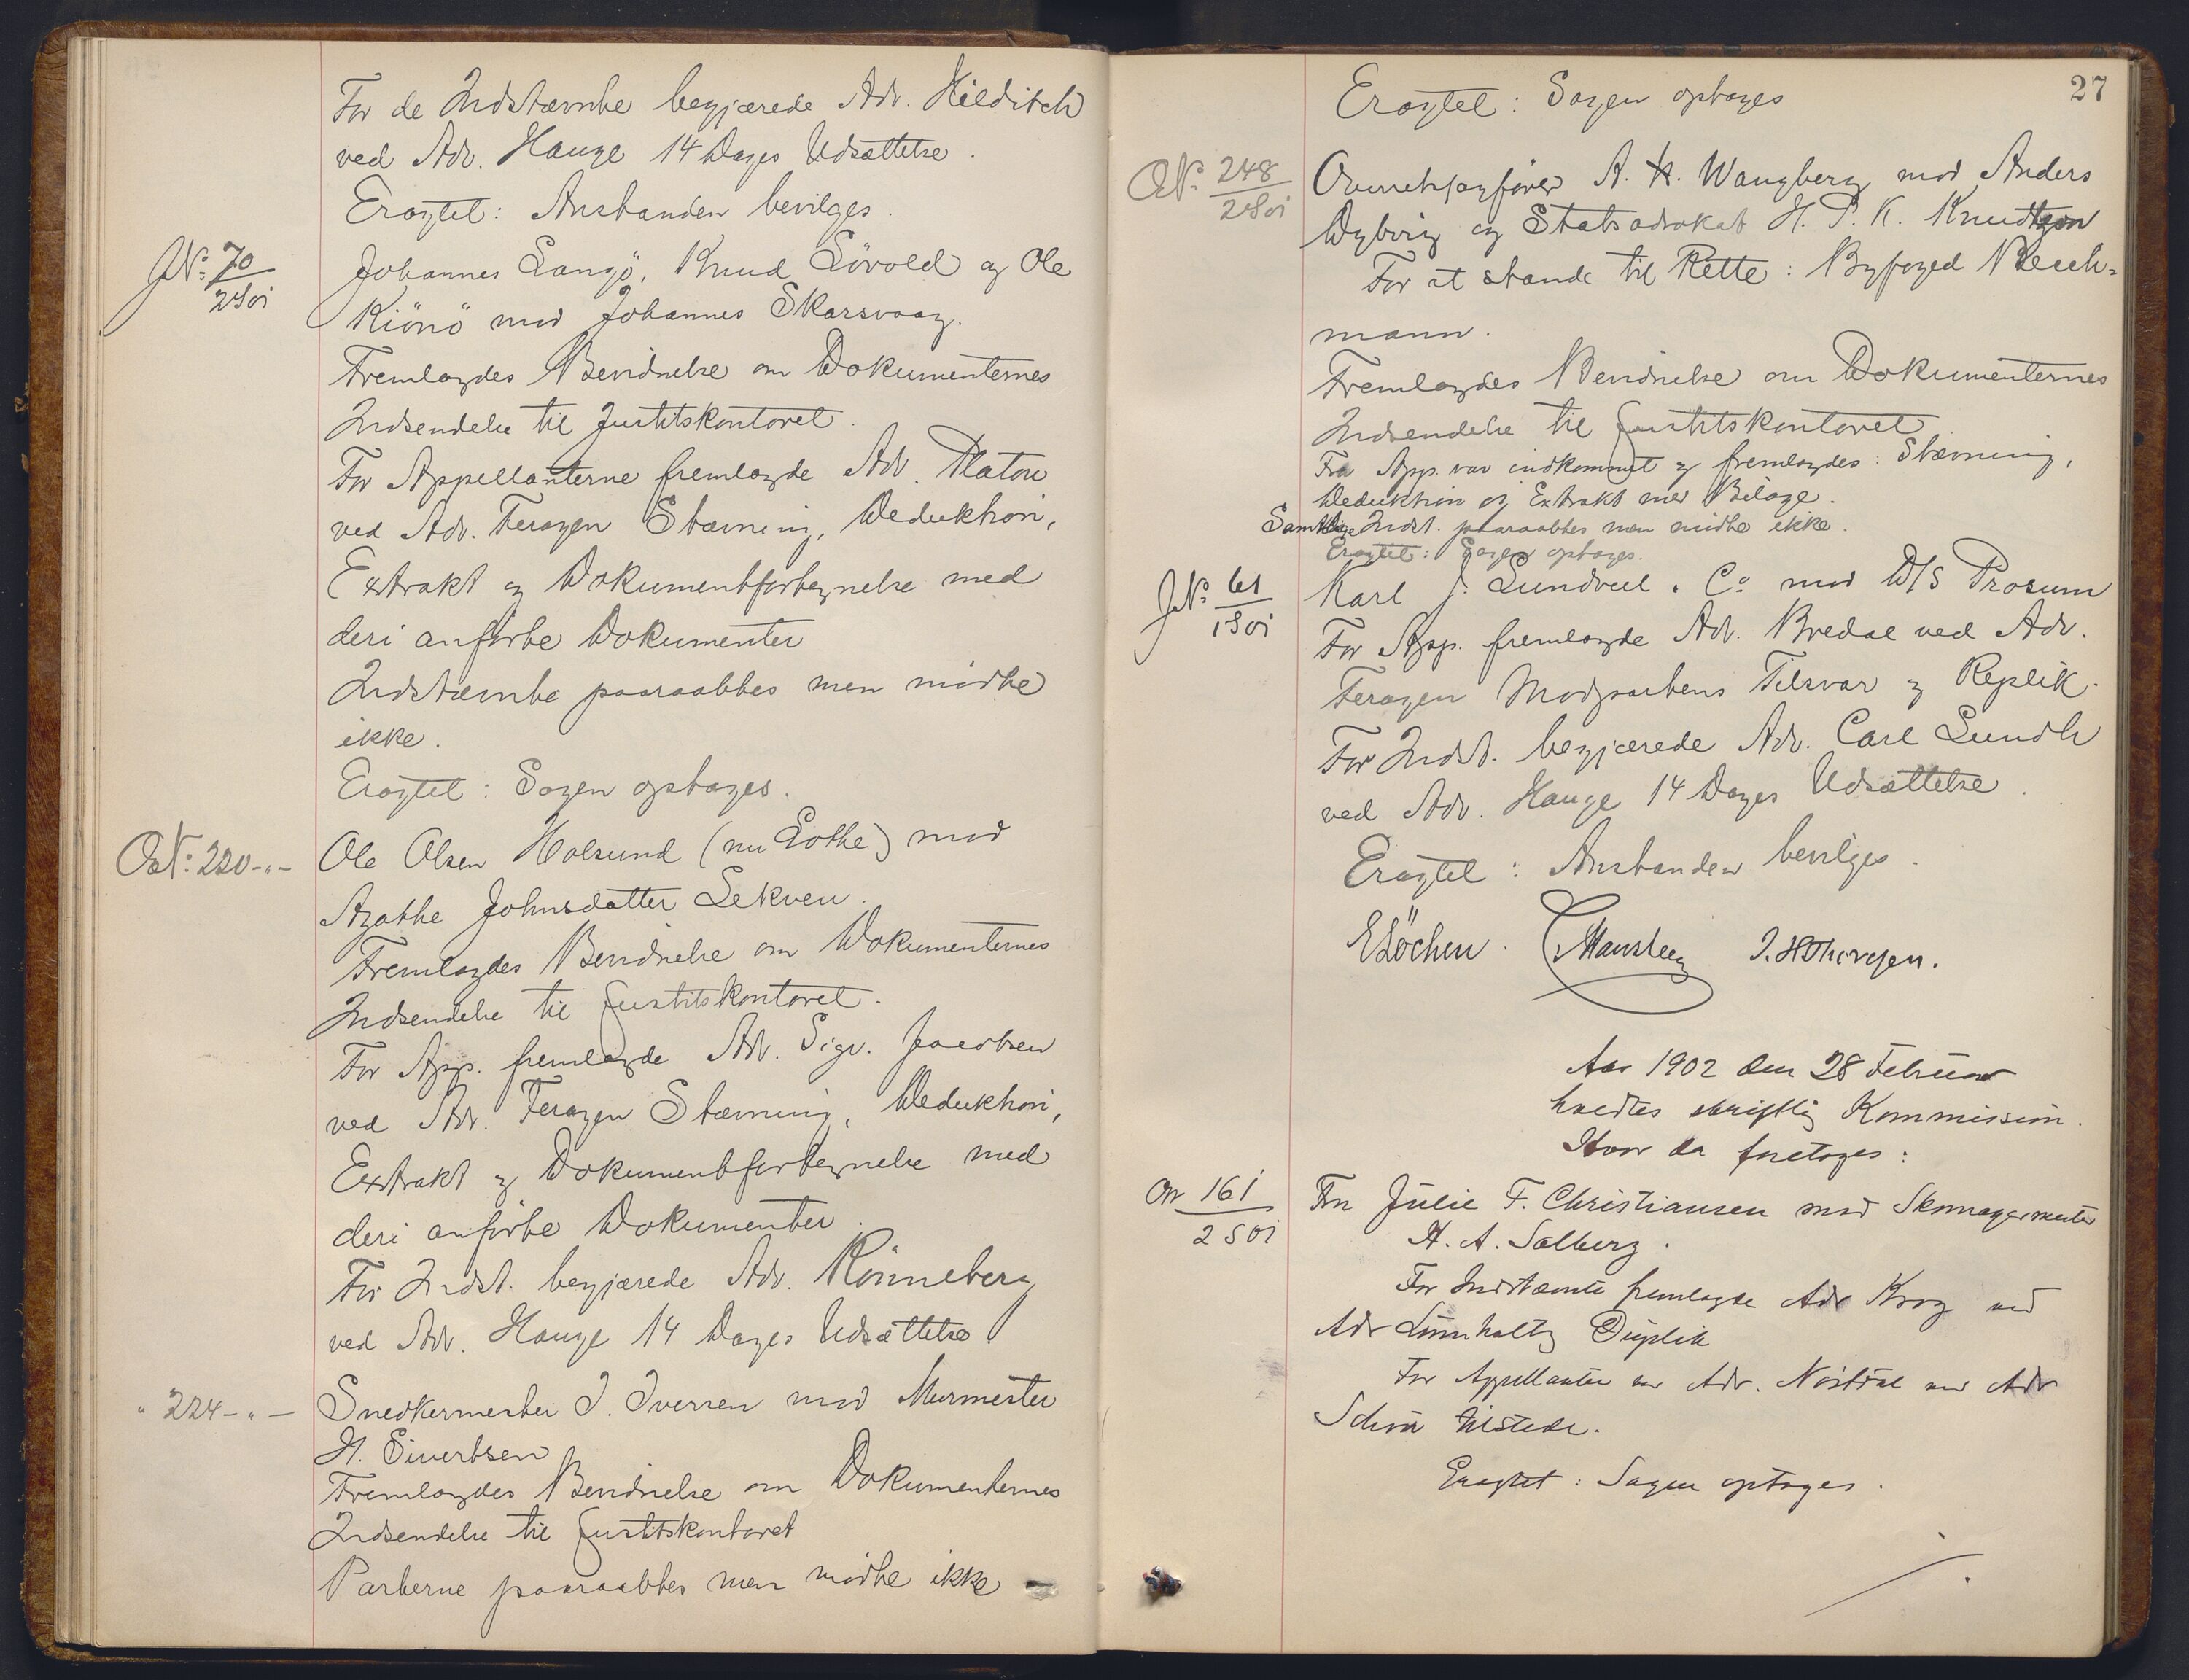 For de Indstævnte begjærede Adv. Hilditch
ved Adv. Hauge 14 Dages Udsættelse.
Eragtet: Anstanden bevilges.
JN: 70/2 S 01
Johannes Langö, Knud Lövold og Ole
Kiönö mod Johannes Skarsvaag.
Fremlagdes Bevidnelse om Dokumenternes
Indsendelse til Justitskontoret.
For Appellanterne fremlagde Adv. Platou
ved Adv. Feragen Stævning, Deduktion,
Extrakt og Dokumentfortegnelse med
deri anförte Dokumenter
Indstævnte paaraabtes men mödte
ikke.
Eragtet: Sagen optages.
ON: 220-"-
Ole Olsen Holsund (nu Lothe) mod
Agathe Johnsdatter Lekven.
Fremlagdes Bevidnelse om Dokumenternes
Indsendelse til Justitskontoret.
For App. fremlagde Adv. Sigv. Jacobsen
ved Adv. Feragen Stævning, Deduktion,
Extrakt og Dokumentfortegnelse med
deri anförte Dokumenter.
For Indst. begjærede Adv. Rönneberg
ved Adv. Hauge 14 Dages Udsættelse
" 224-"-
Snedkermester I. Iversen mod Murmester
H. Sivertsen
Fremlagdes Bevidnelse om Dokumenternes
Indsendelse til Justitskontoret
Parterne paaraabtes men mödte ikke
27
Eragtet: Sagen optages
ON: 248/2 S 01
Overretssagförer A. H. Wangberg mod Anders
Dybvig og Statsadvokat H. P. K. Knudtzon
For at stande til Rette: Byfoged Besch-
mann.
Fremlagdes Bevidnelse om Dokumenternes
Indsendelse til Justitskontoret.
Fra App. var indkommet og fremlagdes: Stævning,
Deduktion og Extrakt med Bilage.
Samtlige Indst. paaraabtes men mödte ikke.
Eragtet: Sagen optages.
JN: 61/1 S 01
Karl J. Lundvel & Co mod D/S Prosum
For App. fremlagde Adv. Bredal ved Adv.
Feragen Modpartens Tilsvar og Replik.
For Indst. begjærede Adv. Carl Lundh
ved Adv. Hauge 14 Dages Udsættelse.
Eragtet: Anstanden bevilges.
E Löchen. Mansteen J. H Thoresen.
Aar 1902 den 28 Februar
holdtes skriftlig Kommission.
Hvor da foretoges:
ON 161/2 S 01
Fru Julie F. Christiansen mod Skomagermester
H. A. Salberg.
For Indstævnte fremlagde Adv Krog ved
Adv Lünnholtz Duplik
For Appellanten var Adv. ved Adv
tilstede.
Eragtet: Sagen optages.